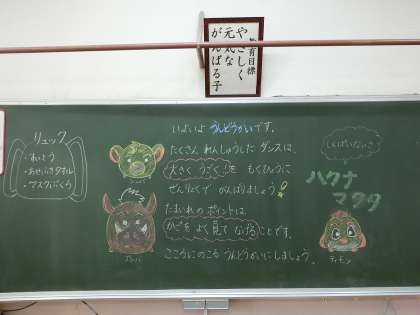 教育目標
やさしく
元気な
がんばる子
リュック
・すいとう
・あせふきタオル
・マスクぶくろ
いよいよ うんどうかいです。
たくさん れんしゅうした ダンスは、
大きく うごく！を もくひょうに
ぜんりょくで がんばりましょう！
たまいれの ポイントは
かごを よく 見て なげることです。
こころにのこる うんどうかいにしましょう。
しんぱいないさ
ハクナ
マタタ
シンバ
プンバ
ティモン